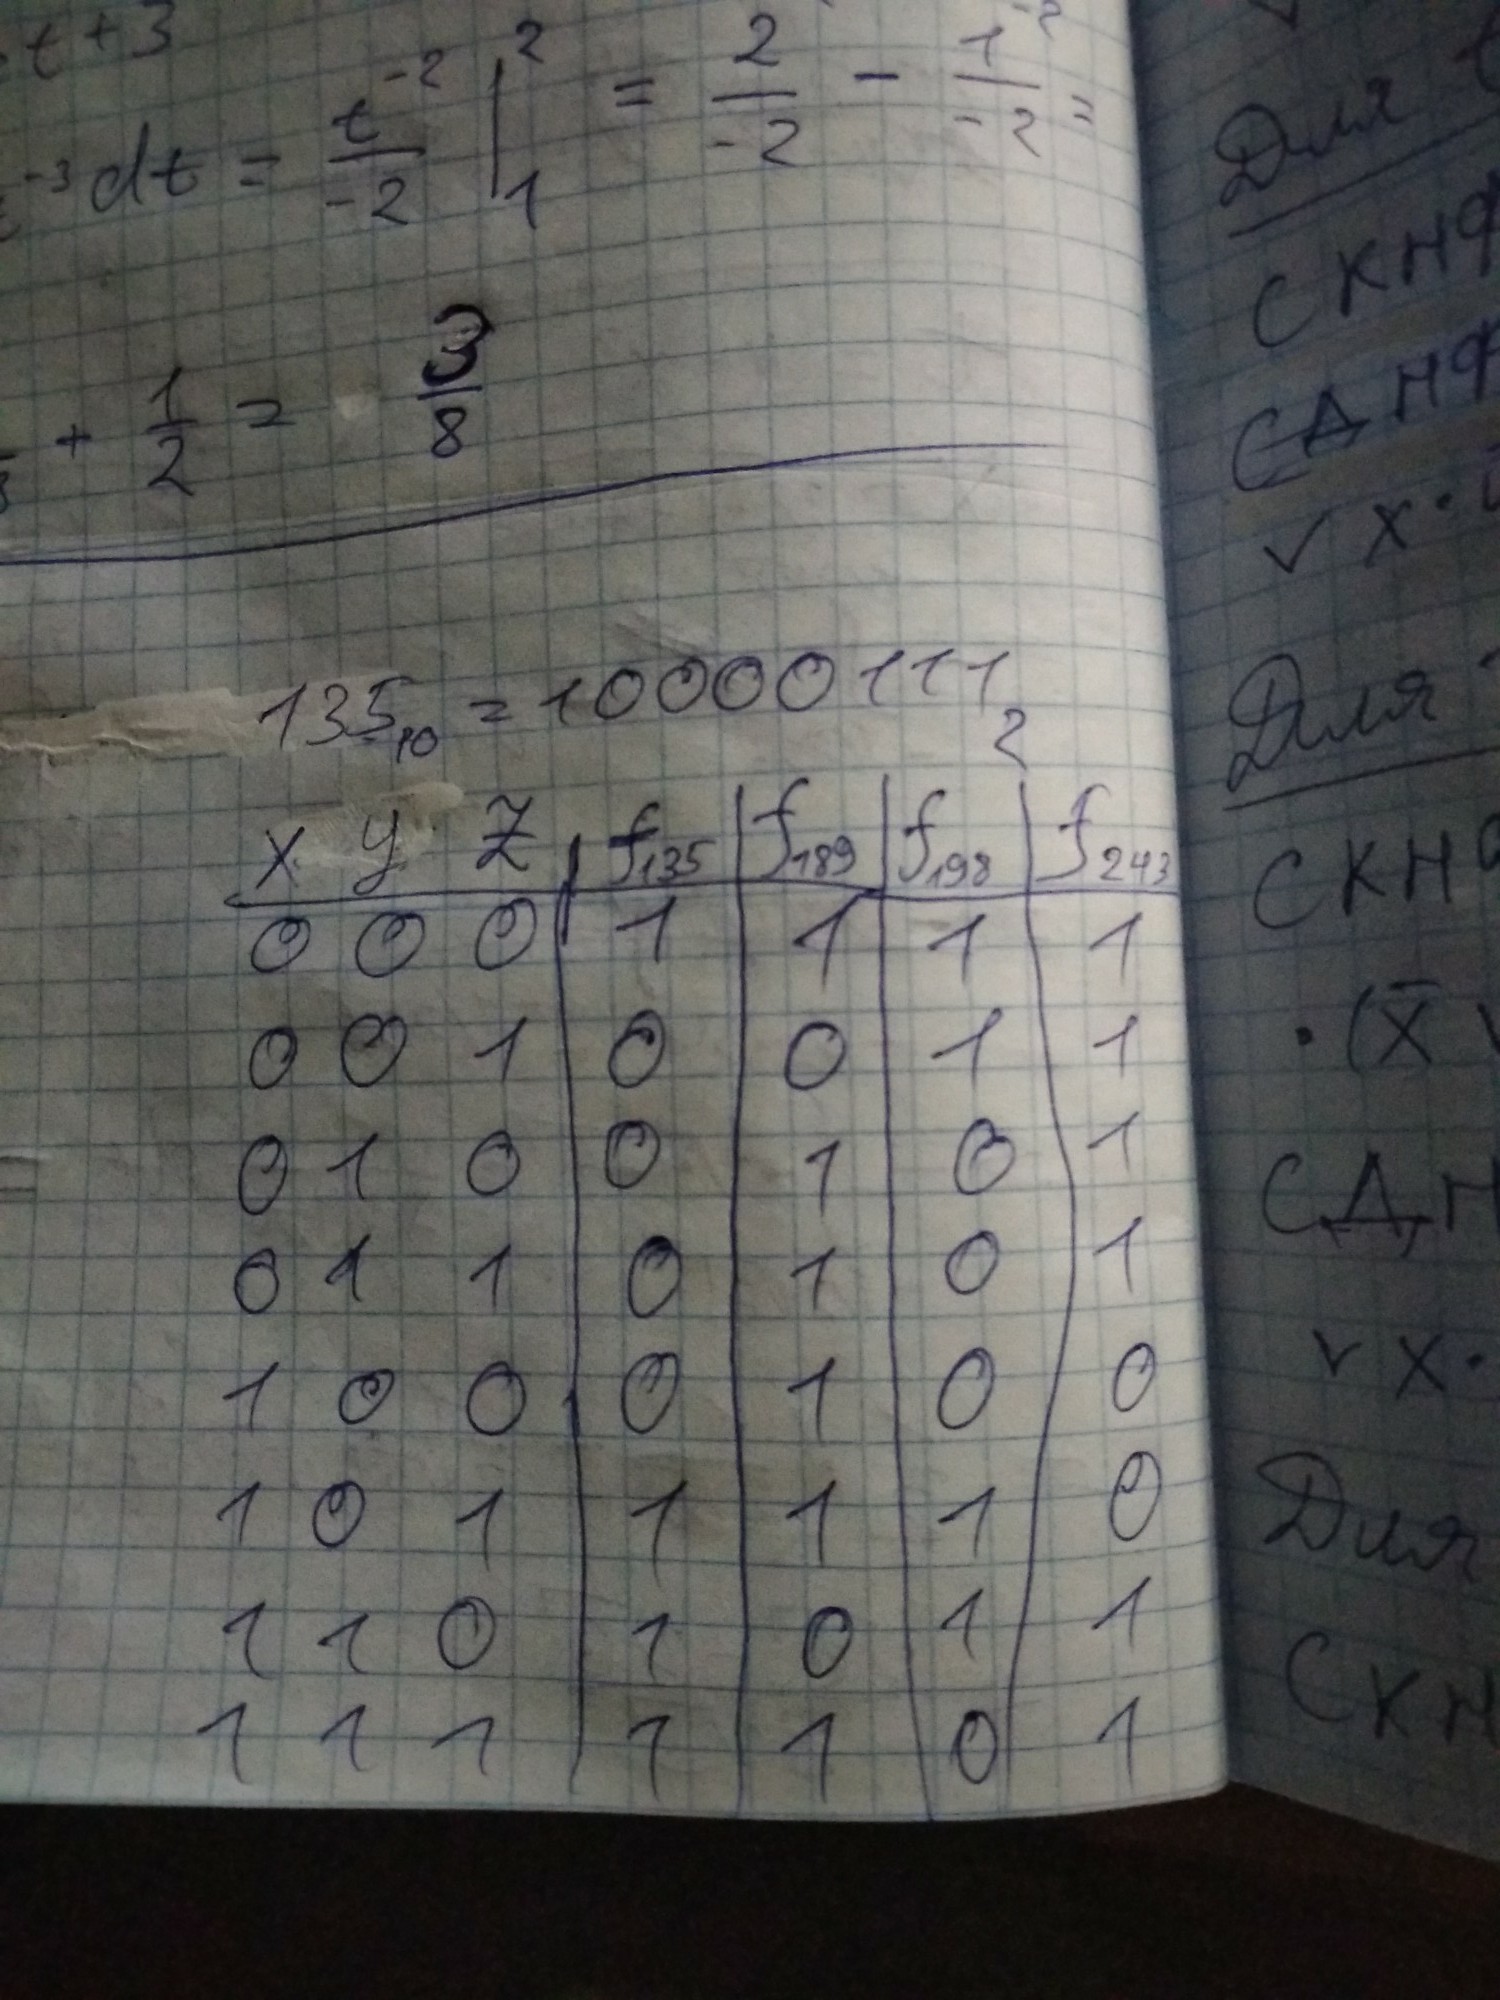 t + 3
⁻³dt = t⁻²/-2 |₁² = 2/-2 - 1⁻²/-2 =
+ 1/2 = 3/8
135₁₀ = 10000111₂
x y z f₁₃₅ f₁₈₉ f₁₉₈ f₂₄₃
0 0 0 1 1 1 1
0 0 1 0 0 1 1
0 1 0 0 1 0 1
0 1 1 0 1 0 1
1 0 0 0 1 0 0
1 0 1 1 1 1 0
1 1 0 1 0 1 1
1 1 1 1 1 0 1
Для
СКНФ
СДНФ
∨ x ·
Для
СКН
· (x̄ ∨
СДН
∨ x ·
Для
СКН